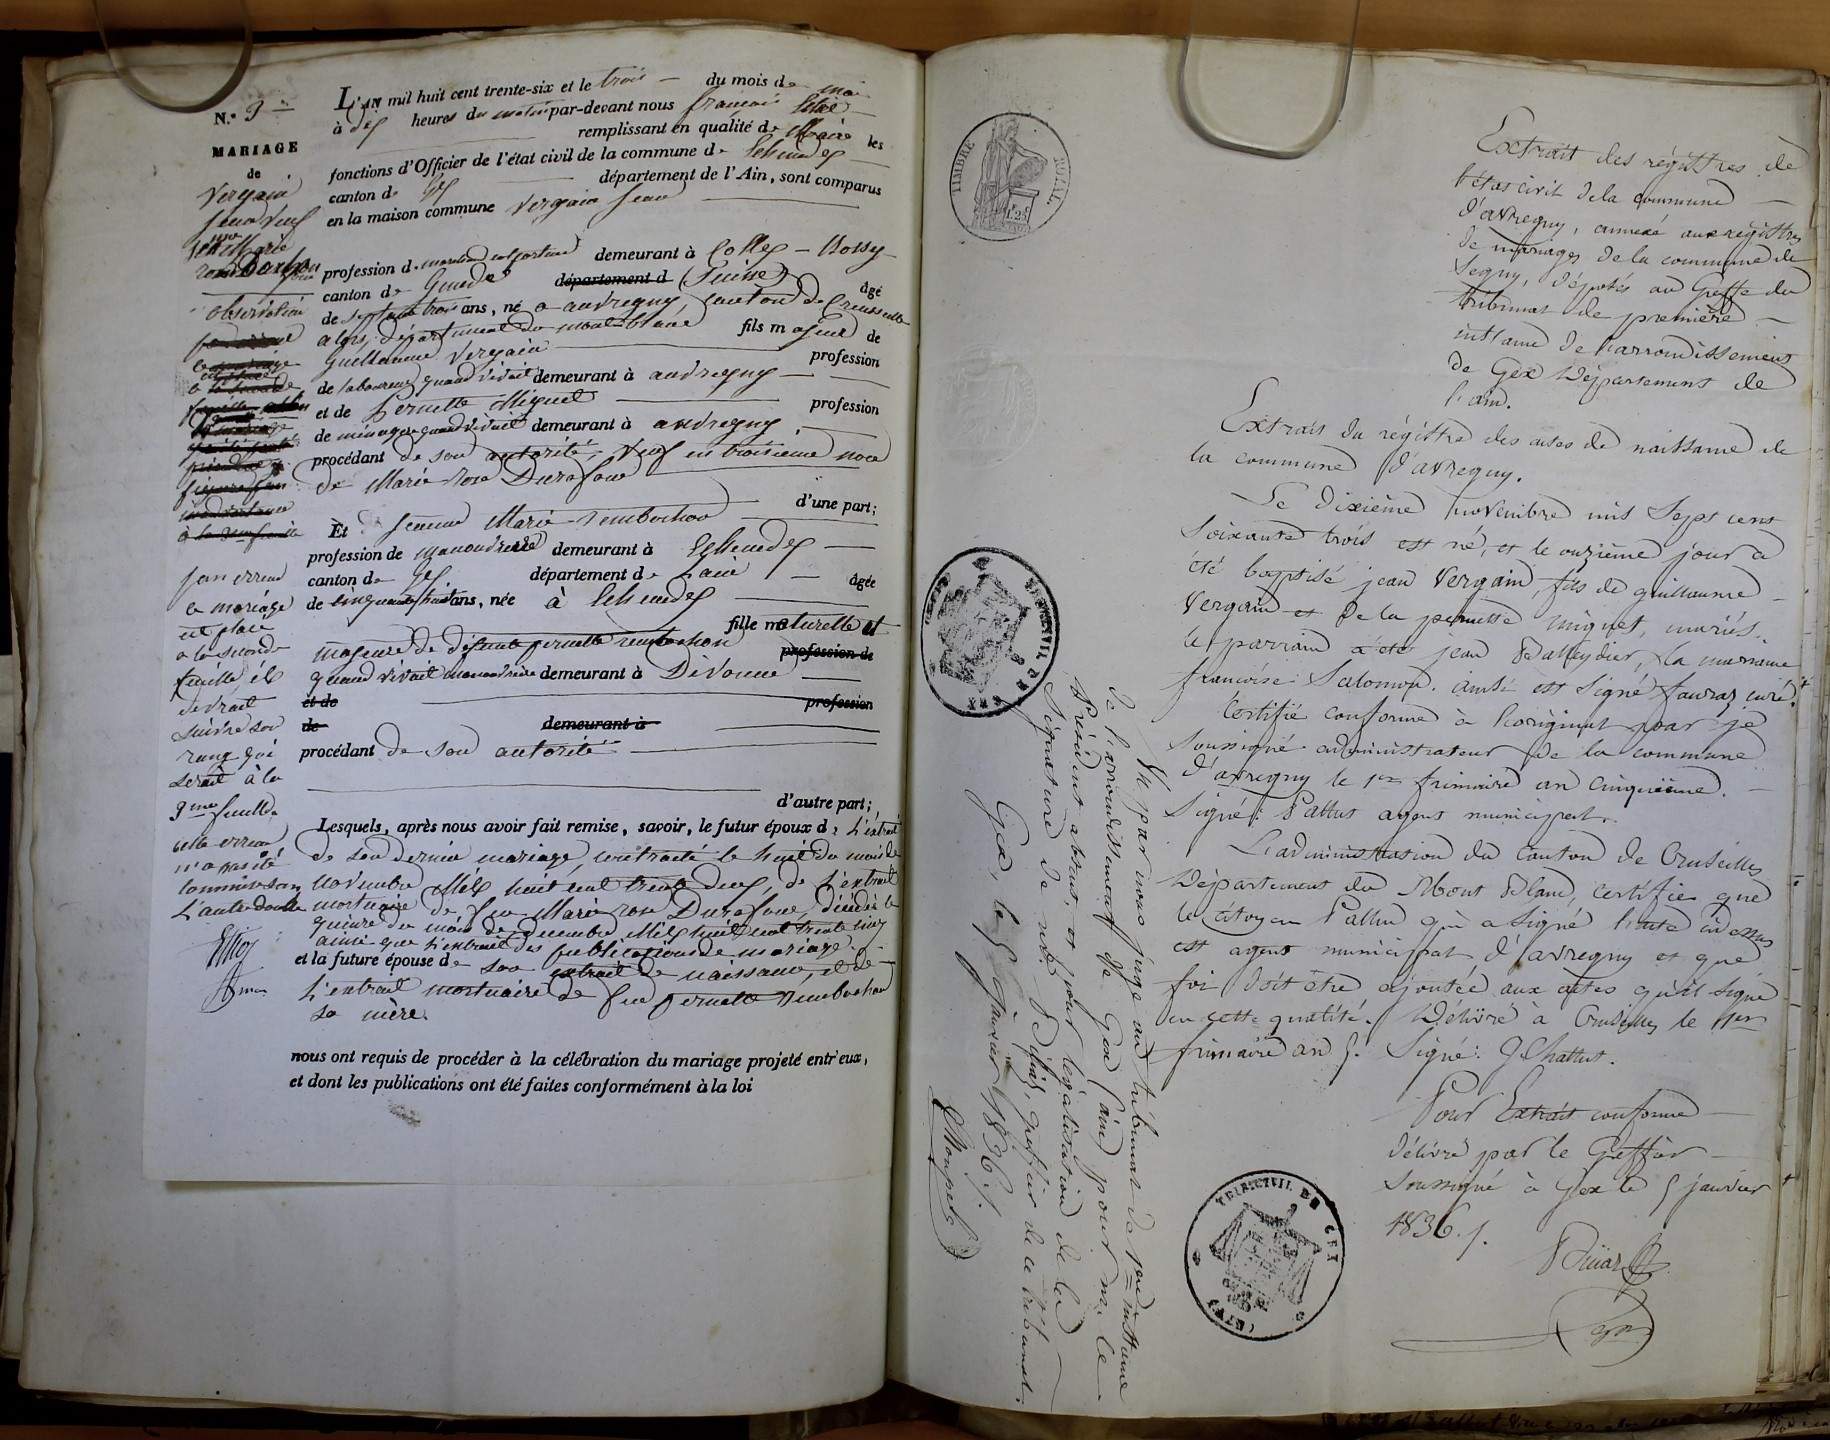 N.° 9
MARIAGE
de
Vergain
Jean Veuf
Marie
observation
par erreur
ce mariage
est placé
à la seconde
feuille il
devrait
suivre son
rang qui
serait à la
9me feuille
cette erreur
n'a pas été
L'AN mil huit cent trente-six et le trois du mois de mai
à dix heures du matin par-devant nous françois
remplissant en qualité de Maire les
fonctions d'Officier de l'état civil de la commune d
canton de Gex département de l'Ain, sont comparus
en la maison commune Vergain Jean
profession d marchand colporteur demeurant à Collex - Bossy
canton de Genève département d (Suisse) âgé
de septante trois ans, né à andregny, canton de
alors département du mont-blanc fils majeur de
guillaume Vergain profession
de laboureur quand vivait demeurant à andregny
et de Pernette Miguet profession
de ménagère quand vivait demeurant à andregny
procédant de son autorité, veuf en troisième noce
de Marie rose Durafour
d'une part;
Et Jeanne Marie
profession de manouvrière demeurant à
canton de Gex département de l'ain âgée
de cinquante huit ans, née à
fille naturelle et
majeure de défunte pernette profession de
quand vivait manouvrière demeurant à Divonne
et de profession
de demeurant à
procédant de son autorité
d'autre part;
Lesquels, après nous avoir fait remise, savoir, le futur époux d, L'extrait
de son dernier mariage, contracté le huit du mois de
novembre Mil huit cent trente deux, de L'extrait
mortuaire de feu Marie rose Durafour, décédée le
quinze du mois de décembre Mil huit cent trente cinq
ainsi que L'extrait des publications de mariage.
et la future épouse de son extrait de naissance, et de
L'extrait mortuaire de feu pernette
sa mère.
nous ont requis de procéder à la célébration du mariage projeté entr'eux,
et dont les publications ont été faites conformément à la loi
TIMBRE ROYAL
1f.25
Extrait des régistres de
l'état civil de la commune
d'avregny, annexé aux registres
de mariages de la commune de
Segny, déposés au Greffe du
tribunal de première
instance de l'arrondissement
de Gex Département de
l'ain.
Extrait du régistre des actes de naissance de
la commune d'avregny.
Le dixième novembre mil sept cent
soixante trois est né, et le onzième jour a
été baptisé jean Vergain, fils de guillaume
Vergain et de la pernette miguet, mariés.
le parrain a été jean Balleydier, la marraine
françoise Salomon. ainsi est signé favraz curé.
Certifié conforme à l'original par je
soussigné administrateur de la commune
d'avregny le 1er frimaire an cinquième.
Signé: Pallut agent municipal.
L'administration du Canton de Cruseilles
Département du Mont Blanc, certifie que
le citoyen Pallut qui a signé l'acte ci dessus
est agent municipal d'avregny et que
foi doit être ajoutée aux actes qu'il signe
en cette qualité. Délivré à Cruseilles le 1er
frimaire an 5. Signé: J Chattut.
Pour Extrait conforme
délivré par le Greffier
soussigné à Gex le 5 janvier
1836.
Vu par nous juge au tribunal de 1re instance
de l'arrondissement de Gex (ain) pour Mr. le
Président absent et pour légalisation de la
signature de Mr greffier de ce tribunal.
Gex, le 5 janvier 1836.
TRIB. CIVIL DE GEX
(AIN)